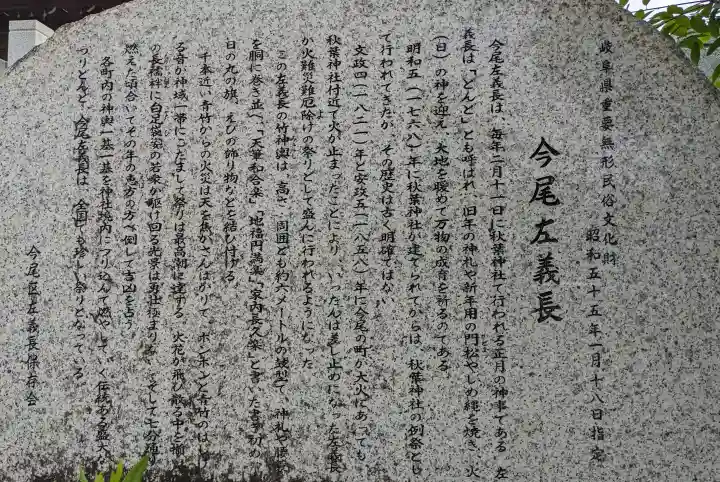 岐阜県重要無形民俗文化財
昭和五十五年一月十八日指定
今尾左義長
今尾左義長は、毎年二月十一日に秋葉神社で行われる正月の神事である。左
義長は「どんど」とも呼ばれ、旧年の神札や新年用の門松やしめ縄を焼き、火
(日)の神を迎え、大地を暖めて万物の成育を祈るのである。
明和五(一七六八)年に秋葉神社が建てられてからは、秋葉神社の例祭とし
て行われてきたが、その歴史は古く明確ではない。
文政四(一八二一)年と安政五(一八五八)年に今尾の町が大火にあっても、
秋葉神社付近で火が止まったことにより、いったんは差し止めになった左義長
が火難災難厄除けの祭りとして盛んに行われるようになった。
この左義長の竹神輿は、高さ、周囲とも約六メートルの
を胴に巻き並べ、「天筆和合楽」「地福円満楽」「家内長久楽」と書いた
日の丸の旗、えびの飾り物などを結び付ける。
千本近い青竹からの火災は天を焦がさんばかりで、ポンポンと青竹のは
る音が神域一帯にこだまして祭りは最高潮に達する。火花が飛び散る中を揃
の長襦袢に白足袋姿の若衆が駆け回る光景は勇壮極まりない。そして七分通り
燃えた頃合いでその年の恵方の方へ倒して吉凶を占う。
各町内の神輿一基一基を神社境内につり込んで燃やしていく伝統ある盛大
つりどんど、今尾左義長は、全国でも珍しい祭りとなっている。
今尾区左義長保存会